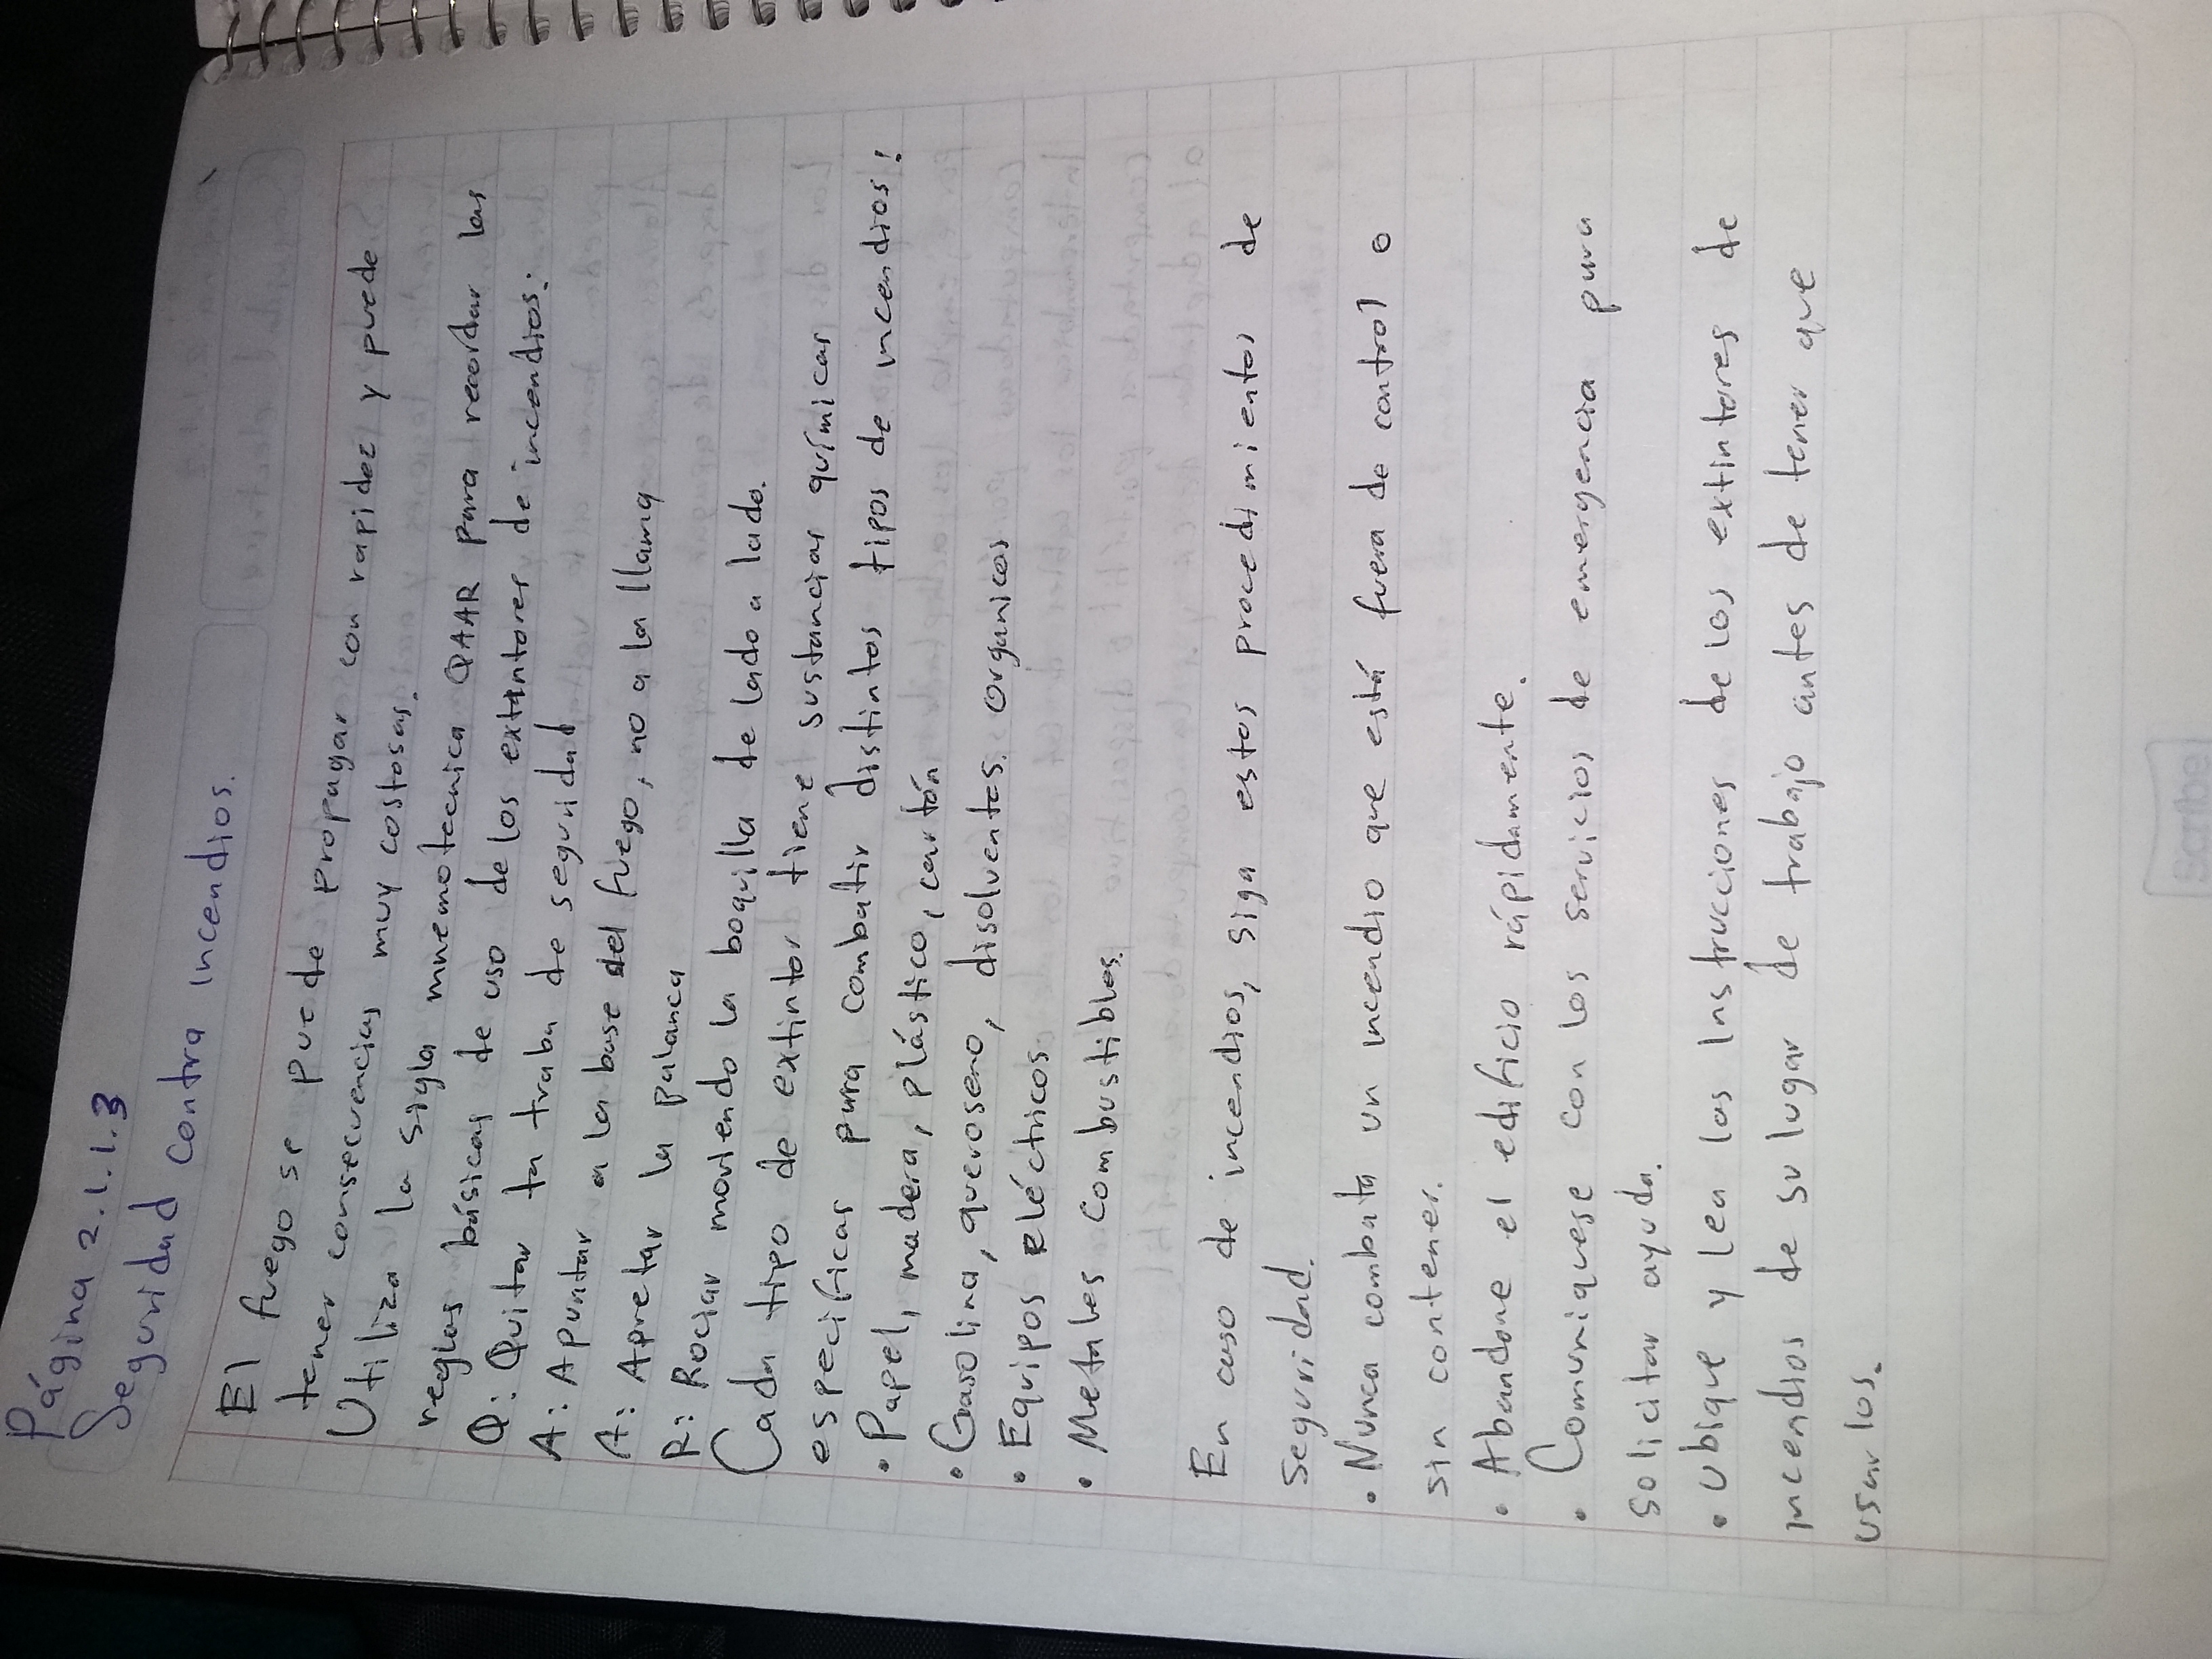 Página 2.1.1.3
Seguridad contra incendios.
El fuego se puede propagar con rapidez y puede
tener consecuencias muy costosas.
Utiliza la sigla mnemotecnica QAAR para recordar las
reglas básicas de uso de los extintores de incendios:
Q: Quitar la traba de seguridad
A: Apuntar a la base del fuego, no a la llama
A: Apretar la palanca
R: Rociar moviendo la boquilla de lado a lado.
Cada tipo de extintor tiene sustancias químicas
especificas para combatir distintos tipos de incendios:
• Papel, madera, plástico, cartón
• Gasolina, queroseno, disolventes. organicos
• Equipos eléctricos
• Metales combustibles.
En caso de incendios, siga estos procedimientos de
seguridad.
• Nunca combata un incendio que está fuera de control o
sin contener.
• Abandone el edificio rápidamente.
• Comuniquese con los servicios de emergencia para
solicitar ayuda.
• Ubique y lea las Instrucciones de los extintores de
incendios de su lugar de trabajo antes de tener que
usarlos.
Scribe